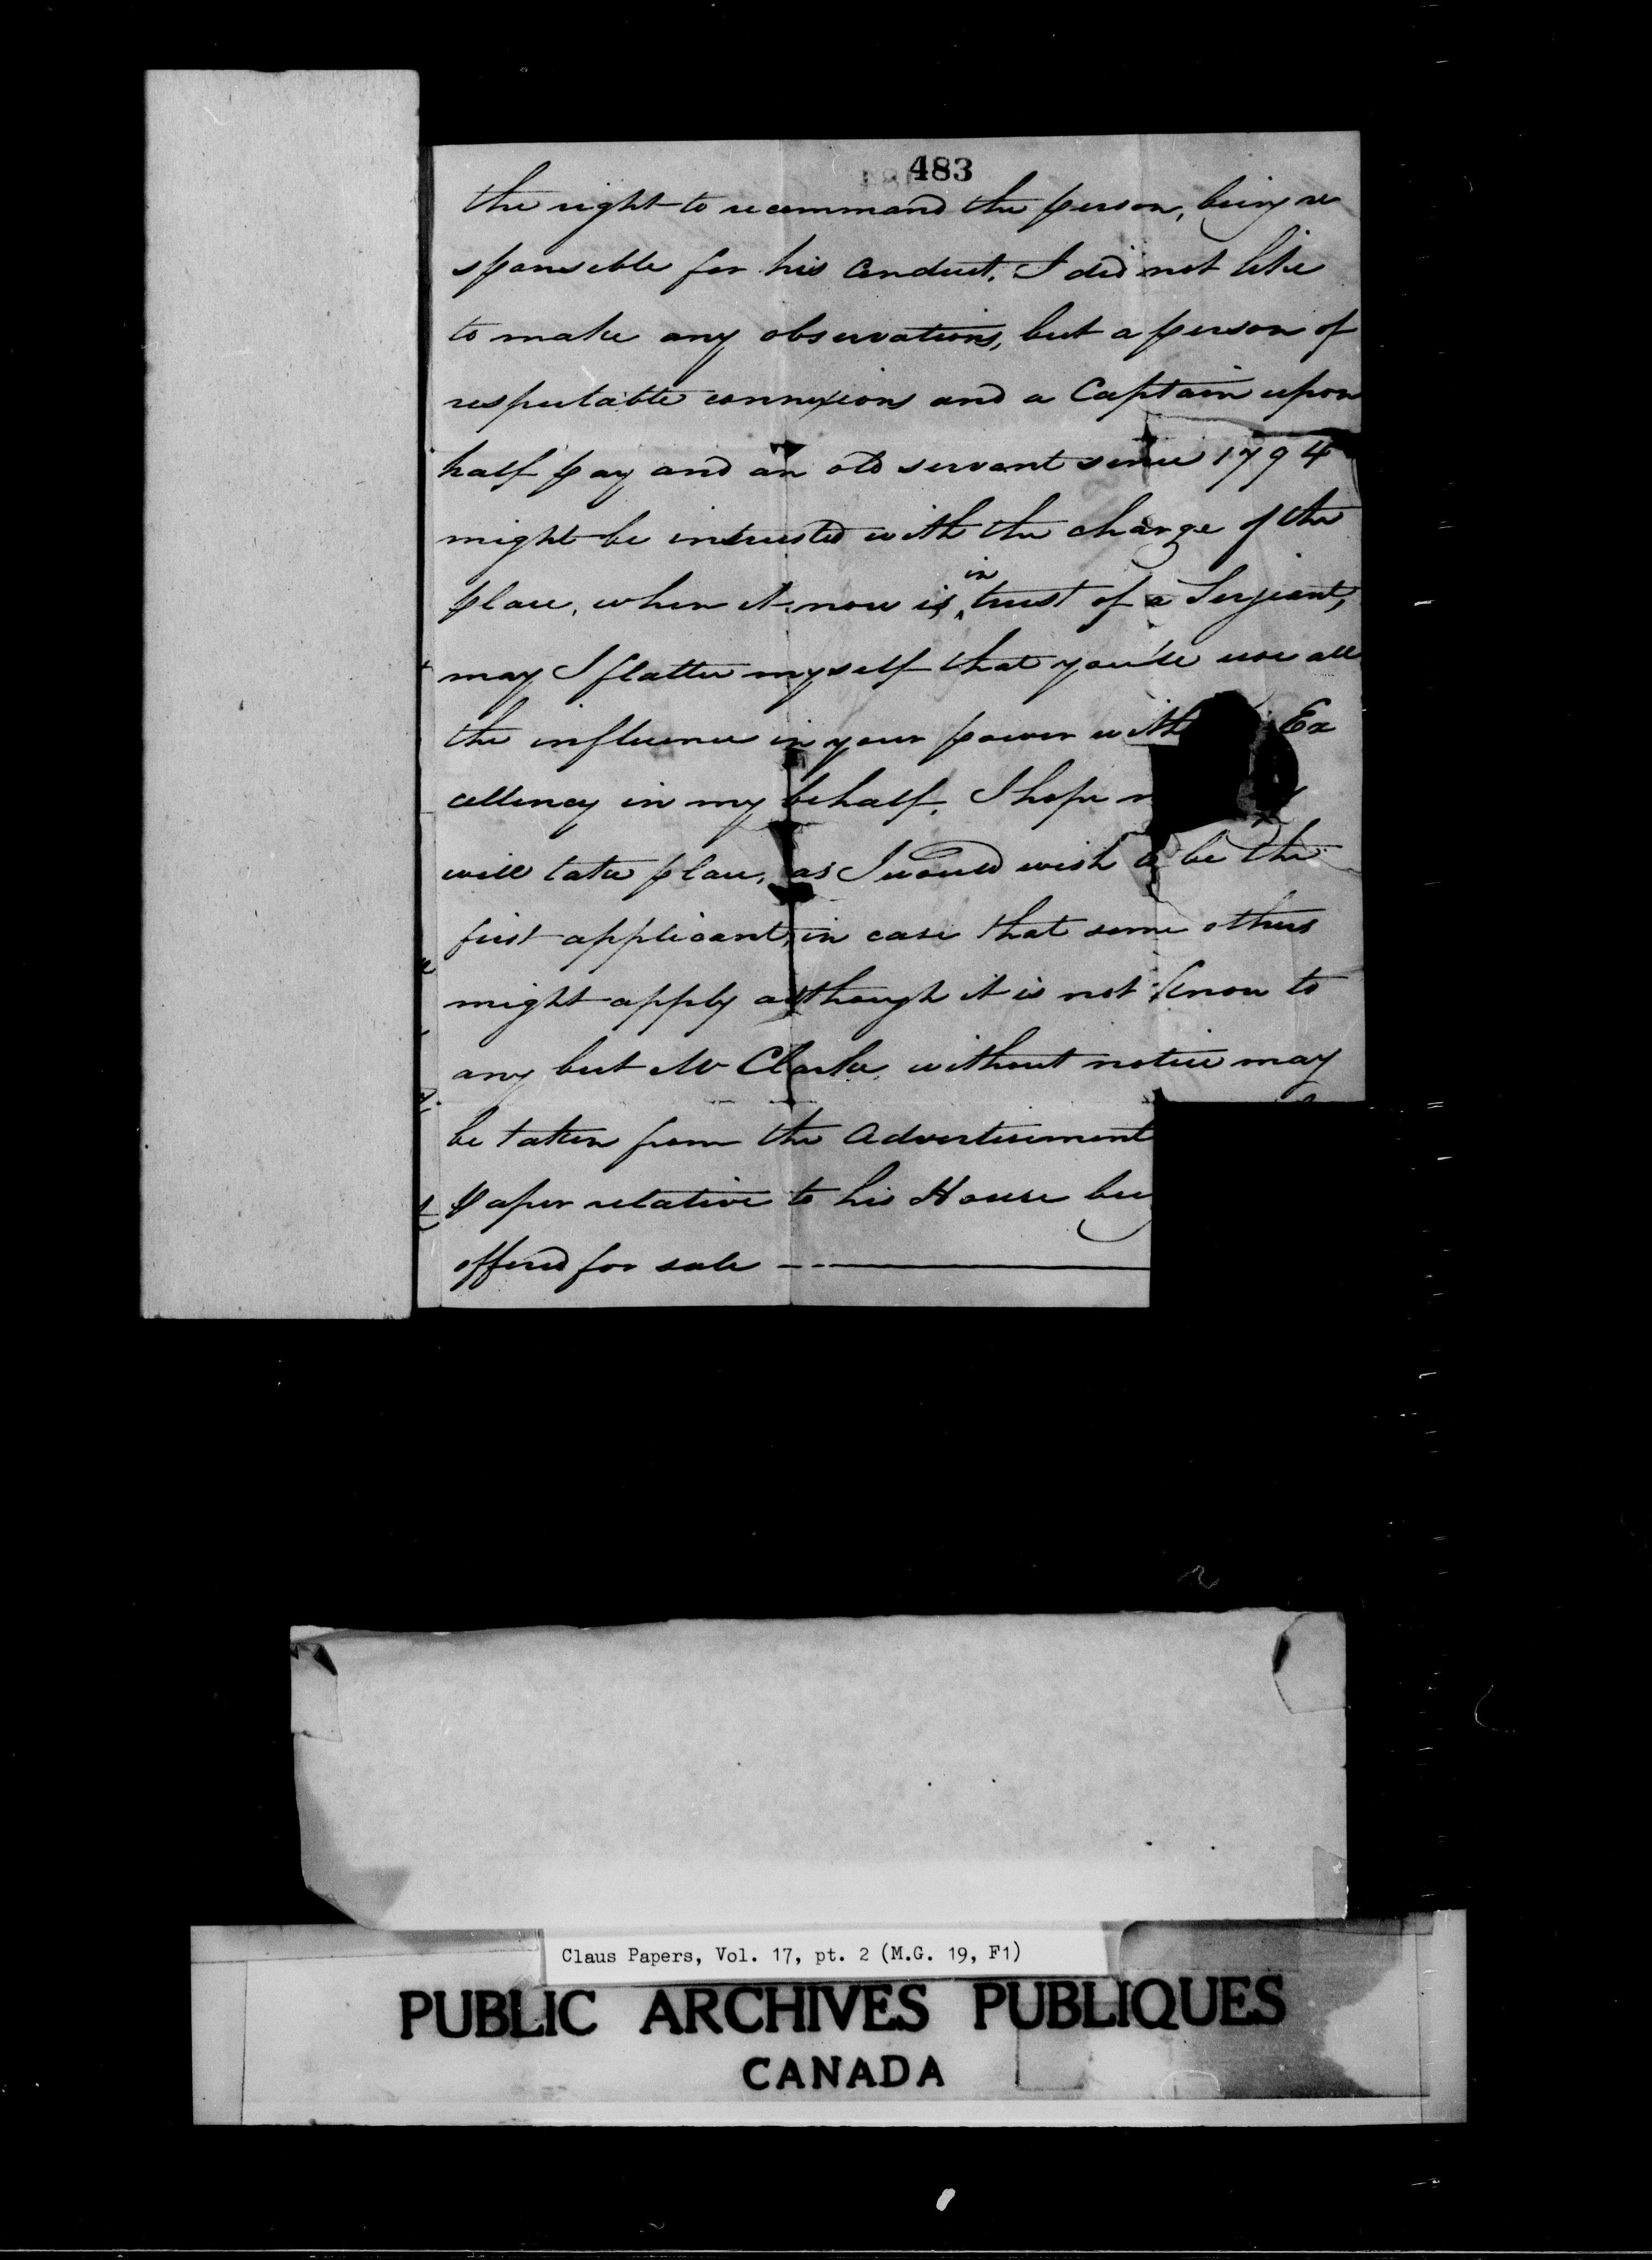 483
the right to recommand the person, being re
sponsible for his Conduct. I did not like
to make any observations, but a person of
respectable connexions and a Captain upon
half pay and an old servant since 1794
might be intrusted with the charge of the
place, when it now is in trust of a Serjeant,
may I flatter myself that you'll use all
the influence in your power with Ex
cellency in my behalf. I hope
will take place, as I would wish to be the
first applicant, in case that some others
might apply although it is not know to
any but Mr Clarke, without notice may
be taken from the Advertisement
Paper relative to his House bei
offered for sale
Claus Papers, Vol. 17, pt. 2 (M.G. 19, F1)
PUBLIC ARCHIVES PUBLIQUES
CANADA